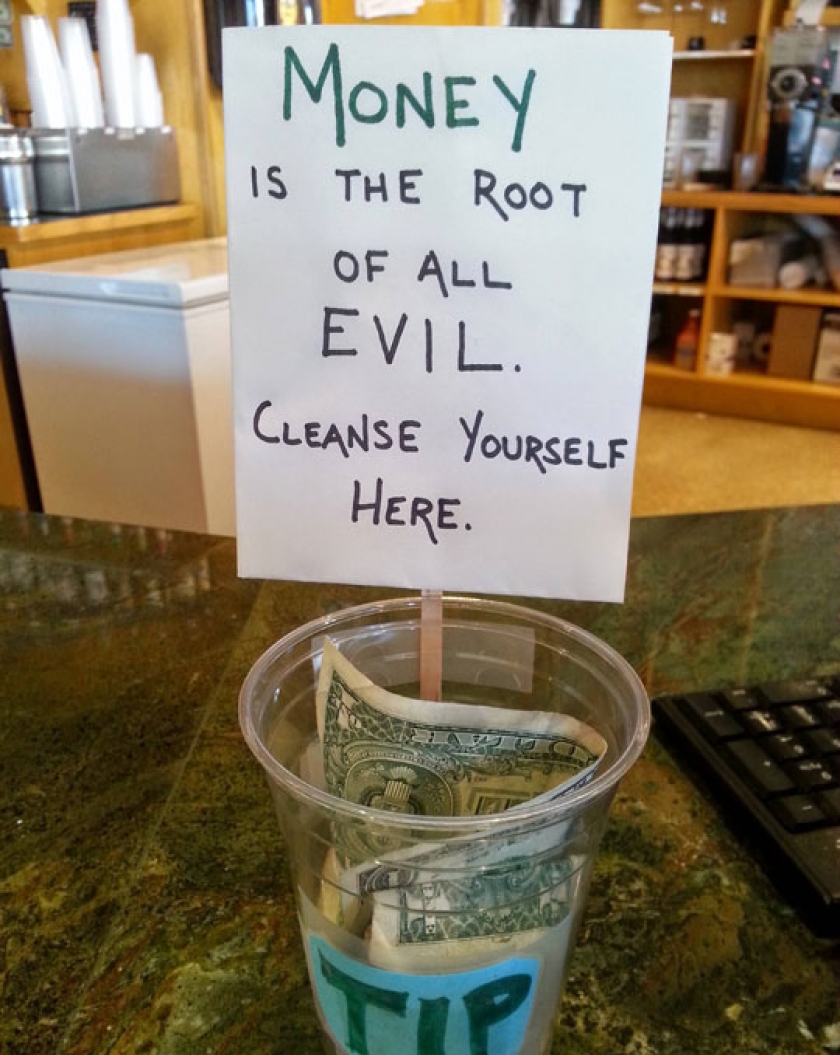 MONEY
IS THE ROOT
OF ALL
EVIL.
CLEANSE YOURSELF
HERE.
DOLLAR
TIP